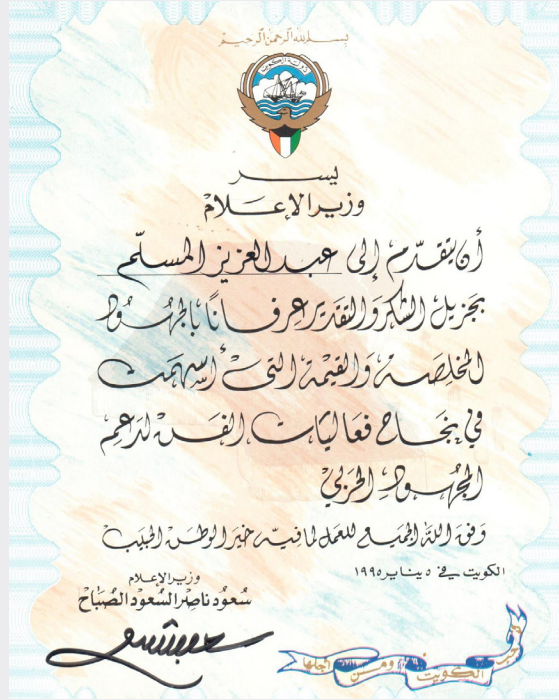 بسم الله الرحمن الرحيم
دولة الكويت
يسر
وزير الإعلام
أن يتقدم إلى عبد العزيز المسلّم
بجزيل الشكر والتقدير عرفاناً بالجهود
المخلصة والقيمة التي أسهمت
في نجاح فعاليات الفن لدعم
المجهود الحربي
وفق الله الجميع للعمل لما فيه خير الوطن الحبيب
الكويت في ٥ يناير ١٩٩٥
وزير الإعلام
سعود ناصر السعود الصباح
حب الكويت ومن أجلها